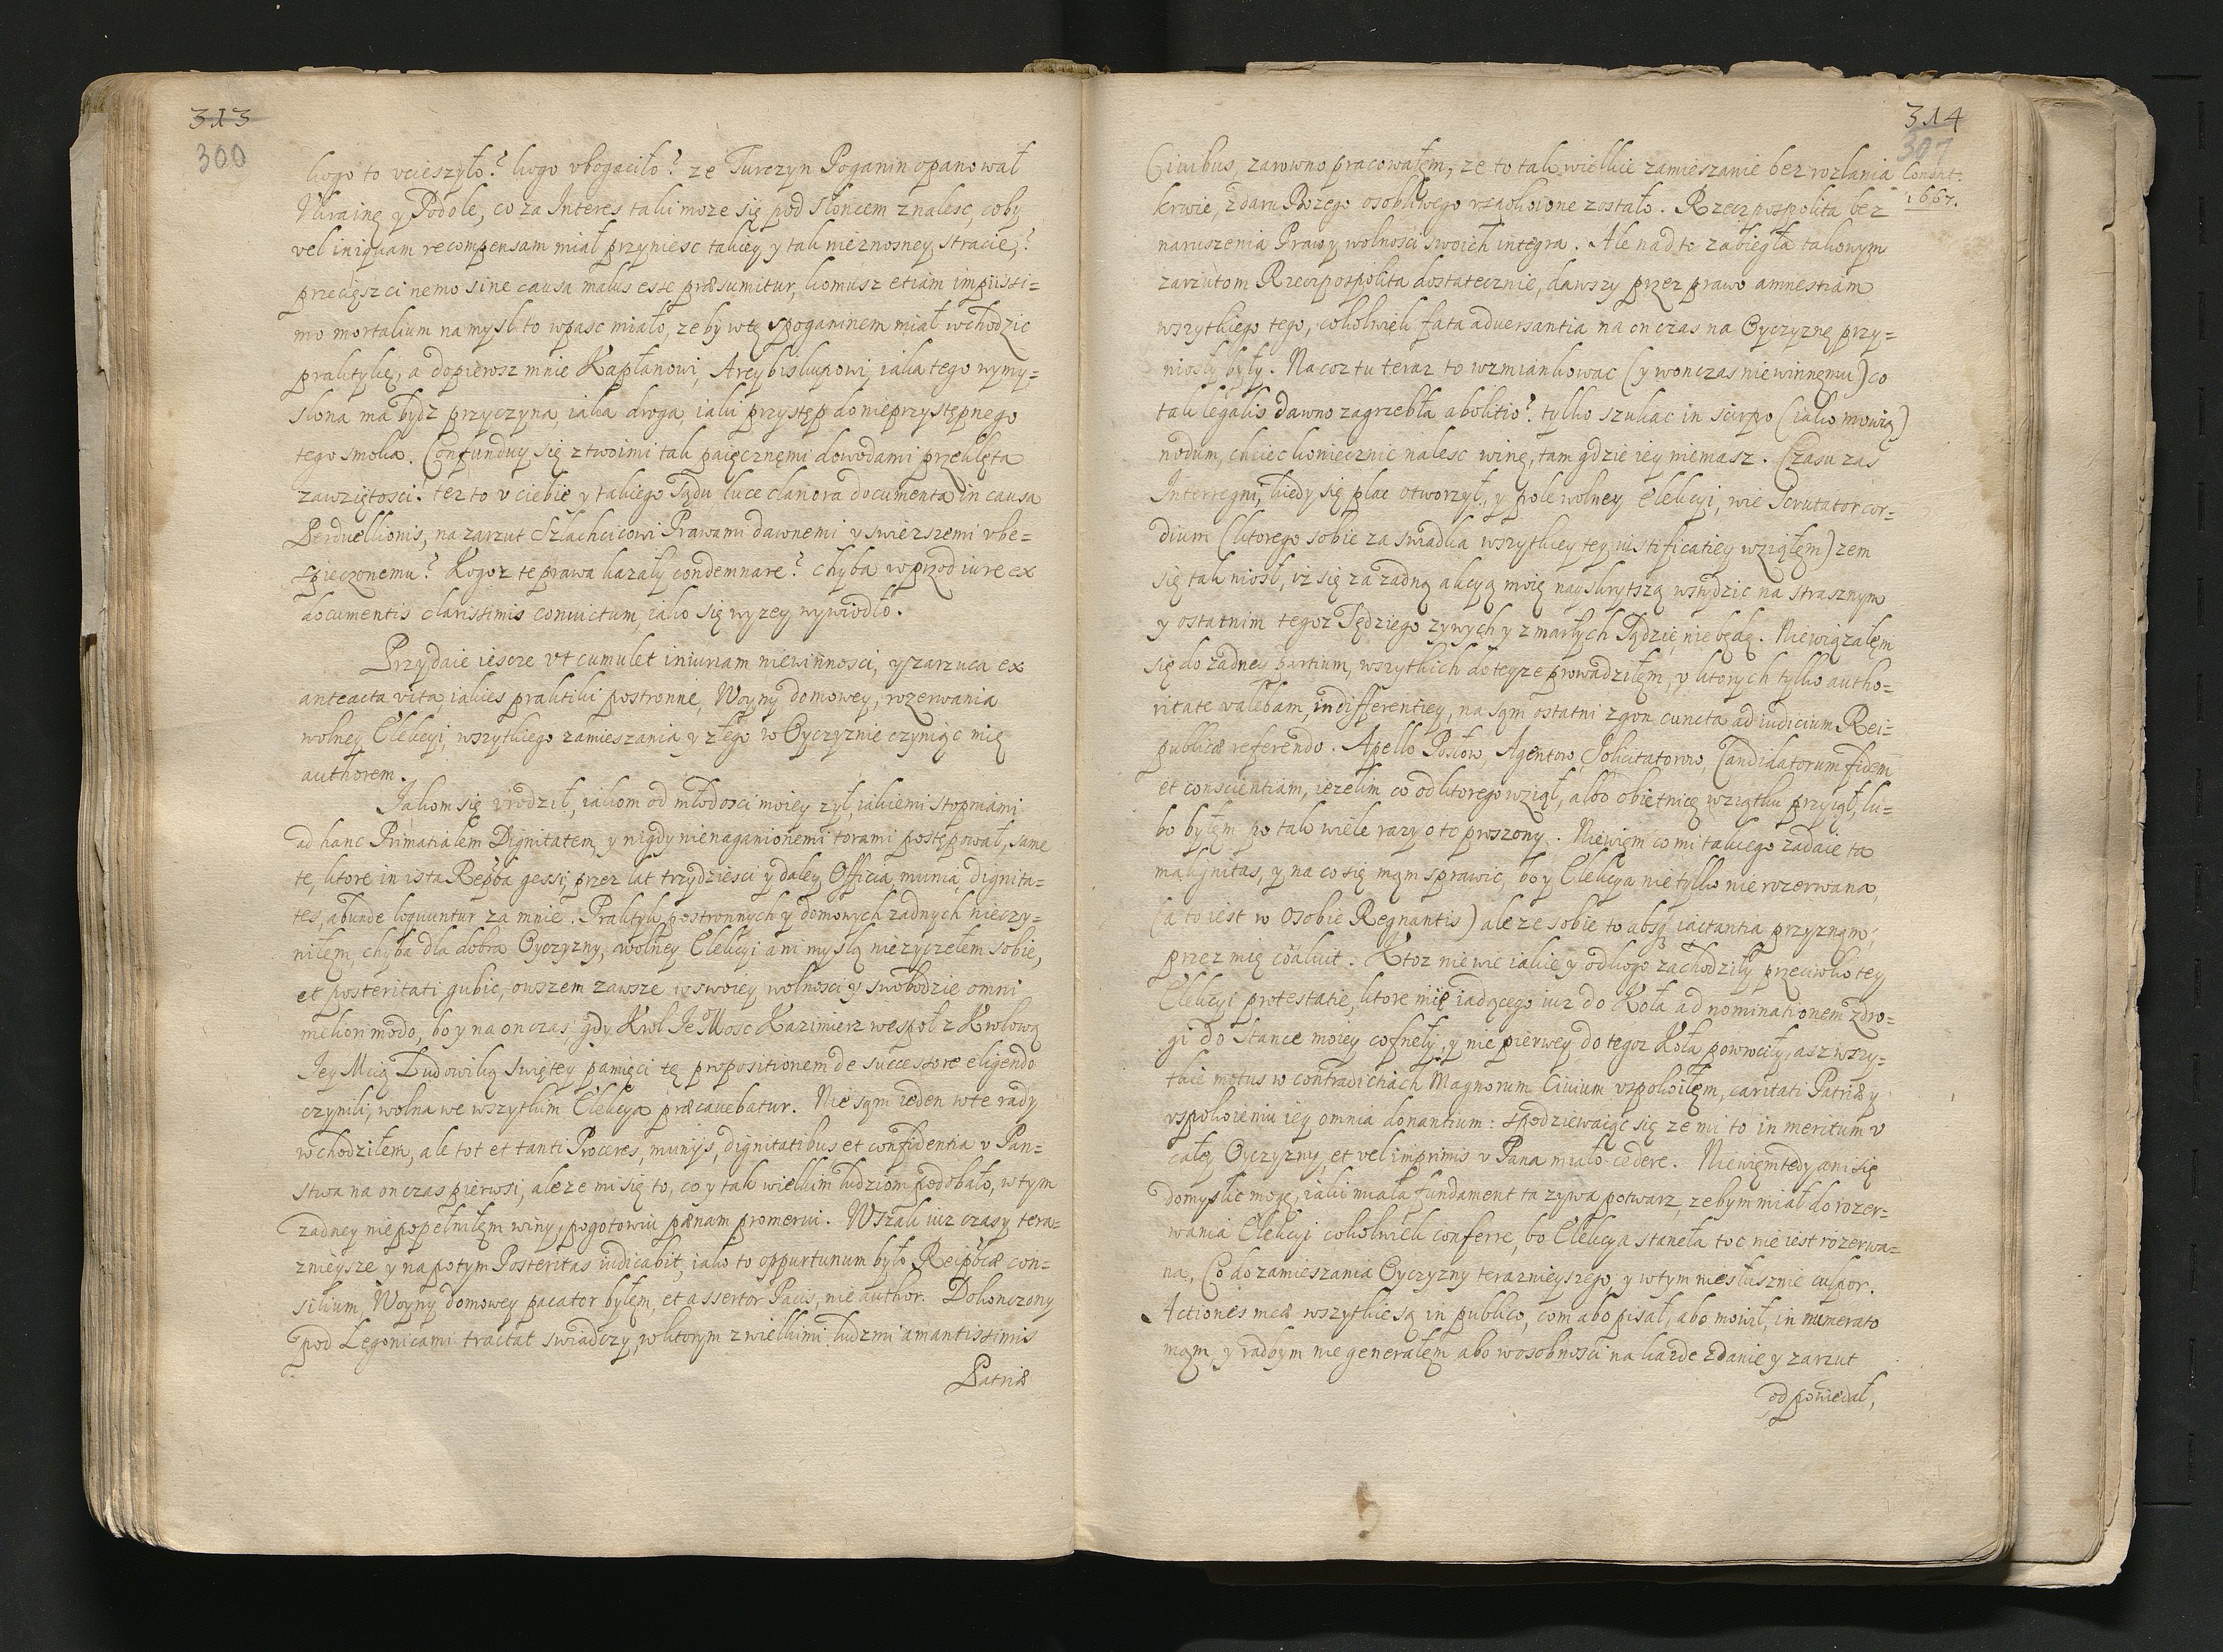 313
300
kogo to vcieszyło? kogo vbogaciło? ze Turczyn Poganin opanował
Vkrainę y Podole, co za Interes taki moze się pod słoncem znalesc, coby
vel iniquam recompensam miał przyniesc takiey y tak nieznosney stracie?
przecięsz ci nemo sine causa malus esse præsumitur, komusz etiam impiissi=
mo mortalium na mysl to wpasc miało, zeby wtę spoganinem miał wchodzic
praktykę, a dopierosz mnie Kapłanowi, Arcybiskupowi, iaka tego wymy=
slona ma bydz przyczyna, iaka droga, iaki przystęp do nieprzystępnego
tego smoka. Confunduy się z twoimi tak paięcznęmi dowodami przeklęta
zawziętosci! tez to v ciebie y takiego Sądu luce clariora documenta in causa
Perduellionis, na zarzut Szlachcicowi Prawami dawnemi y swiezszemi vbe=
spieczonemu? Kogoz te prawa kazały condemnare? chyba wprzod iure ex
documentis clarissimis convictum, iako się wyzey wywiodło.
Przydaie iescze vt cumulet iniuriam niewinnosci, y zarzuca ex
anteacta vita, iakies praktiki postronne, Woyny domowey, rozerwania
wolney Elekcyi, wszytkiego zamieszania y złego w Oyczyznie czyniąc mię
authorem.
Iakom się vrodził, iakom od młodosci moiey zył, iakiemi stopniami
ad hanc Primatialem Dignitatem, y nigdy nienaganionemi torami postępował, same
te, ktore in ista Repba gessi, przez lat trzydziesci y daley Officia, munia, dignita=
tes, abunde loquuntur za mnie. Praktyk postronnych y domowych zadnych nieczy=
niłem, chyba dla dobra Oyczyzny, a wolney Elekcyi ani myslą niezyczełem sobie,
et posteritati gubic, owszem zawsze w swoiey wolnosci y swobodzie omni
meliori modo, bo y na on czas, gdy Krol Je Mosc Kazimierz wespoł z Krolową
Jey Mcią Ludowiką swiętey pamięci tę propositionem de successore eligendo
czynili, wolna we wszytkim Elekcya præcauebatur. Nie sąm ieden w te rady
wchodziłem, ale tot et tanti Proceres, munijs, dignitatibus et confidentia v Pan=
stwa na on czas pierwsi, ale ze mi się to, co y tak wielkim ludziom podobało, w tym
zadney niepopełniłęm winy, pogotowiu pænam promerui. Wszak iuz czasy tera=
znieysze y napotym Posteritas iudicabit, iako to oppurtunum było Reipbcæ con=
silium, Woyny domowey pacator byłęm, et assertor Pacis, nie author. Dokonczony
pod Łęgonicami tractat swiadczy, w ktorym z wielkimi ludzmi amantissimis
Patriæ
314
307
Condit:
1667.
Ciuibus, zarowno pracowałęm, ze to tak wielkie zamieszanie bez rozlania
krwie, z daru Bozego osobliwego vspokoione zostało. Rzeczpospolita bez
naruszenia Praw y wolnosci swoich integra. Ale nad to zabiegła takowym
zarzutom Rzeczpospolita dostatecznie, dawszy przez prawo amnestiam
wszytkiego tego, cokolwiek fata aduersantia na on czas na Oyczyznę przy=
niosły były. Na coz tu teraz to wzmiankowac (y wonczas niewinnęmu) co
tak legalis dawno zagrzebła abolitio? tylko szukac in scirpo (iako mowią)
nodum, chciec koniecznie nalesc winę, tam gdzie iey niemasz. Czasu zas
Interregni, kiedy się plac otworzył, y pole wolney Elekcyi, wie Scrutator cor=
dium (ktorego sobie za swiadka wszytkiey tey iustificatiey wziąłęm) zem
się tak niosł, iz się za zadną akcyą moię nayskrytszą wstydzic na strasznym
y ostatnim tegoz Sędziego zywych y zmarłych Sądzie nie będę. Niewiązałęm
się do zadney partium, wszytkich do teyze prowadziłęm, v ktorych tylko autho=
ritate walebam, indifferentiey, na sąm ostatni zgon cuncta ad iudicium Rei=
publicæ referendo. Apello Posłow, Agentow, Solicitatorow, Candidatorum fidem
et conscientiam, iezelim co od ktorego wziął, albo obietnicę wziątku przyiął, lu=
bo byłęm po tak wiele razy o to proszony. Niewięm co mi takiego zadaie ta
malignitas, y na co się mąm sprawic, bo y Elekcya nie tylko nie rozerwana,
(a to iest w Osobie Regnantis) ale ze sobie to absq iactantia przyznąm,
przez mię coaluit. Ktoz niewie iakie y od kogo zachodziły przeciwko tey
Elekcyi protestatie, ktore mię iadącego iuz do Koła ad nominationem z dro=
gi do Stance moiey cofnęły, y nie pierwey do tegoz Koła powrociły, asz wszy=
tkie motus w contradictiach Magnorum Ciuium vspokoiłęm, caritati Patriæ y
vspokoieniu iey omnia donantium: spodziewaiąc się ze mi to in meritum v
całey Oyczyzny, et vel imprimis v Pana miało cedere. Niewięm tedy ani się
domyslic mogę, iaki miała fundament ta zywa potwarz, zebym miał do rozer=
wania Elekcyi cokolwiek conferre, bo Elekcya staneła toc nie iest rozerwa=
na. Co do zamieszania Oyczyzny teraznieyszego, y w tym niesłusznie culpor.
Actiones meæ wszytkie są in publico, com abo pisał, abo mowił, in numerato
mąm, y radbym nie generałęm abo w osobnosci na kazde zdanie y zarzut
odpowiedał,